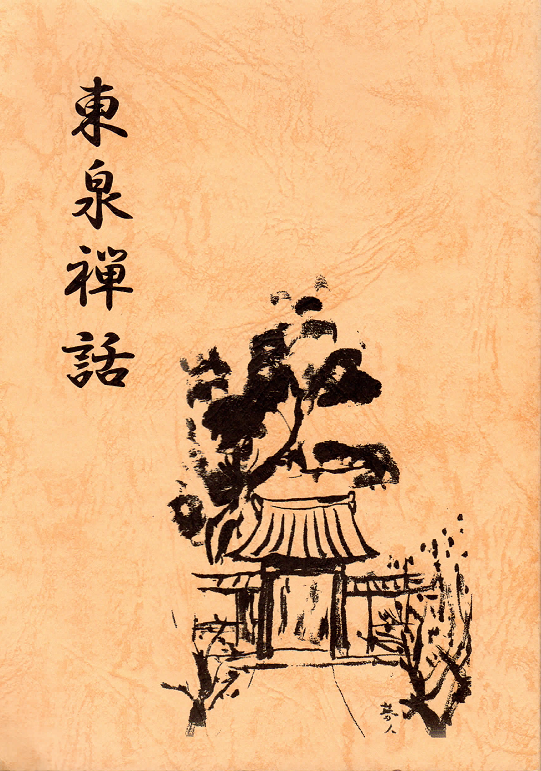 東泉禅話
夢人